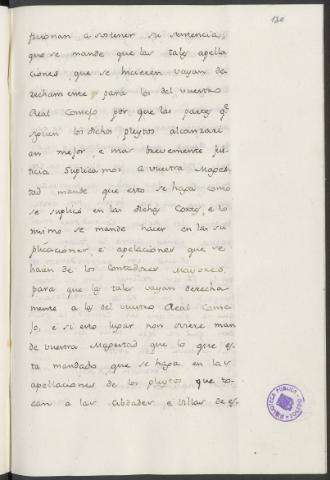 130
ficionan a sostener su sentencia,
que se mande que las tales apella
ciones que se hicieren vayan de
rechamente para los del vuestro
Real Consejo por que las partes q.e
siguen los dichos pleytos alcanzari
an mejor, e mas brevemente jus
ticia. Suplicamos a vuestra Mages
tad mande que esto se haga como
se suplicó en las dichas Cortes, e lo
mismo se mande hacer en las su
plicaciones, e apelaciones que se
hacen de los Contadores Mayores,
para que las tales vayan derecha
mente a los del vuestro Real Conse
jo, e si esto lugar non oviere man
de vuestra Magestad que lo que es
ta mandado que se haga en las
apellaciones de los pleytos que to
can a las cibdades, e villas de es
BIBLIOTECA PUBLICA
TOLEDO